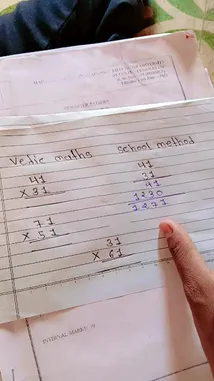 Vedic maths
41
x 31
71
x 51
school method
41
31
41
1230
1271
31
x 61
INTERNAL MARKS: 10